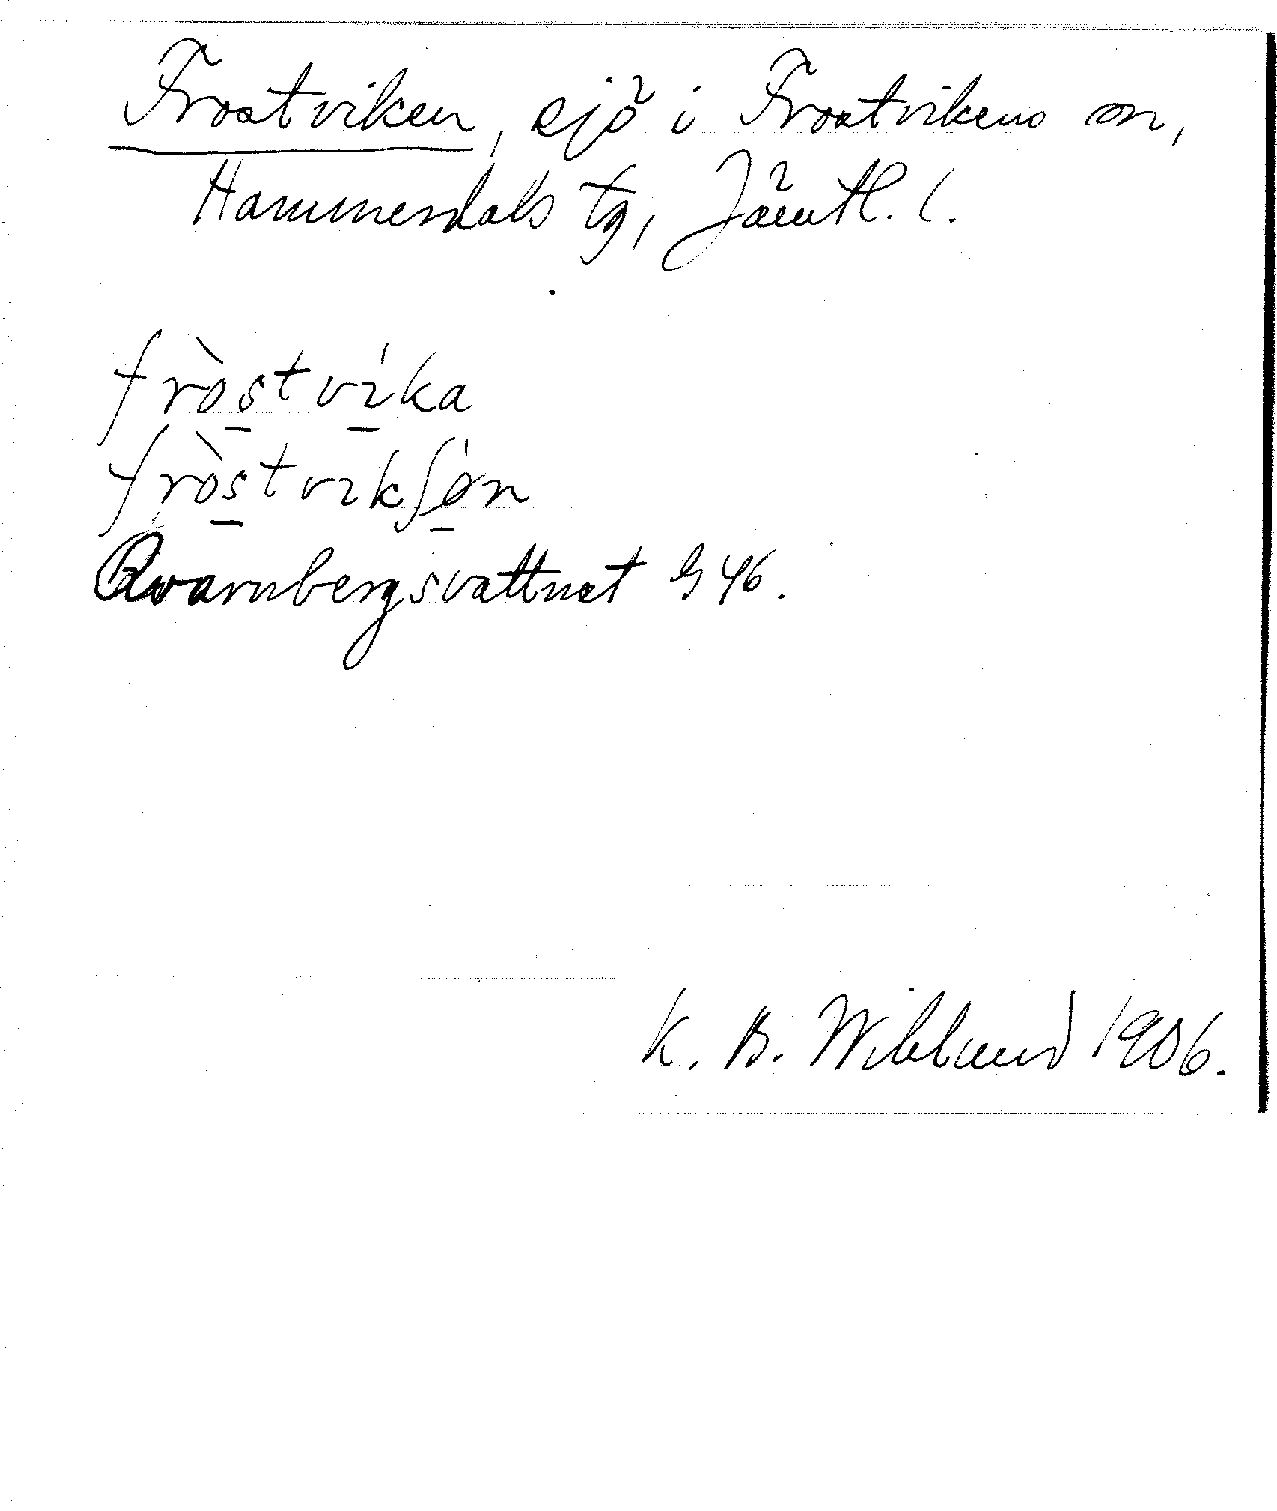 Frostviken, sjö i Frostvikens sn,
Hammerdals tg, Jämtl. l.
fròstvíka
fròstvikʃǿn
Qvarnbergsvattnet G 46.
K. B. Wiklund 1906.